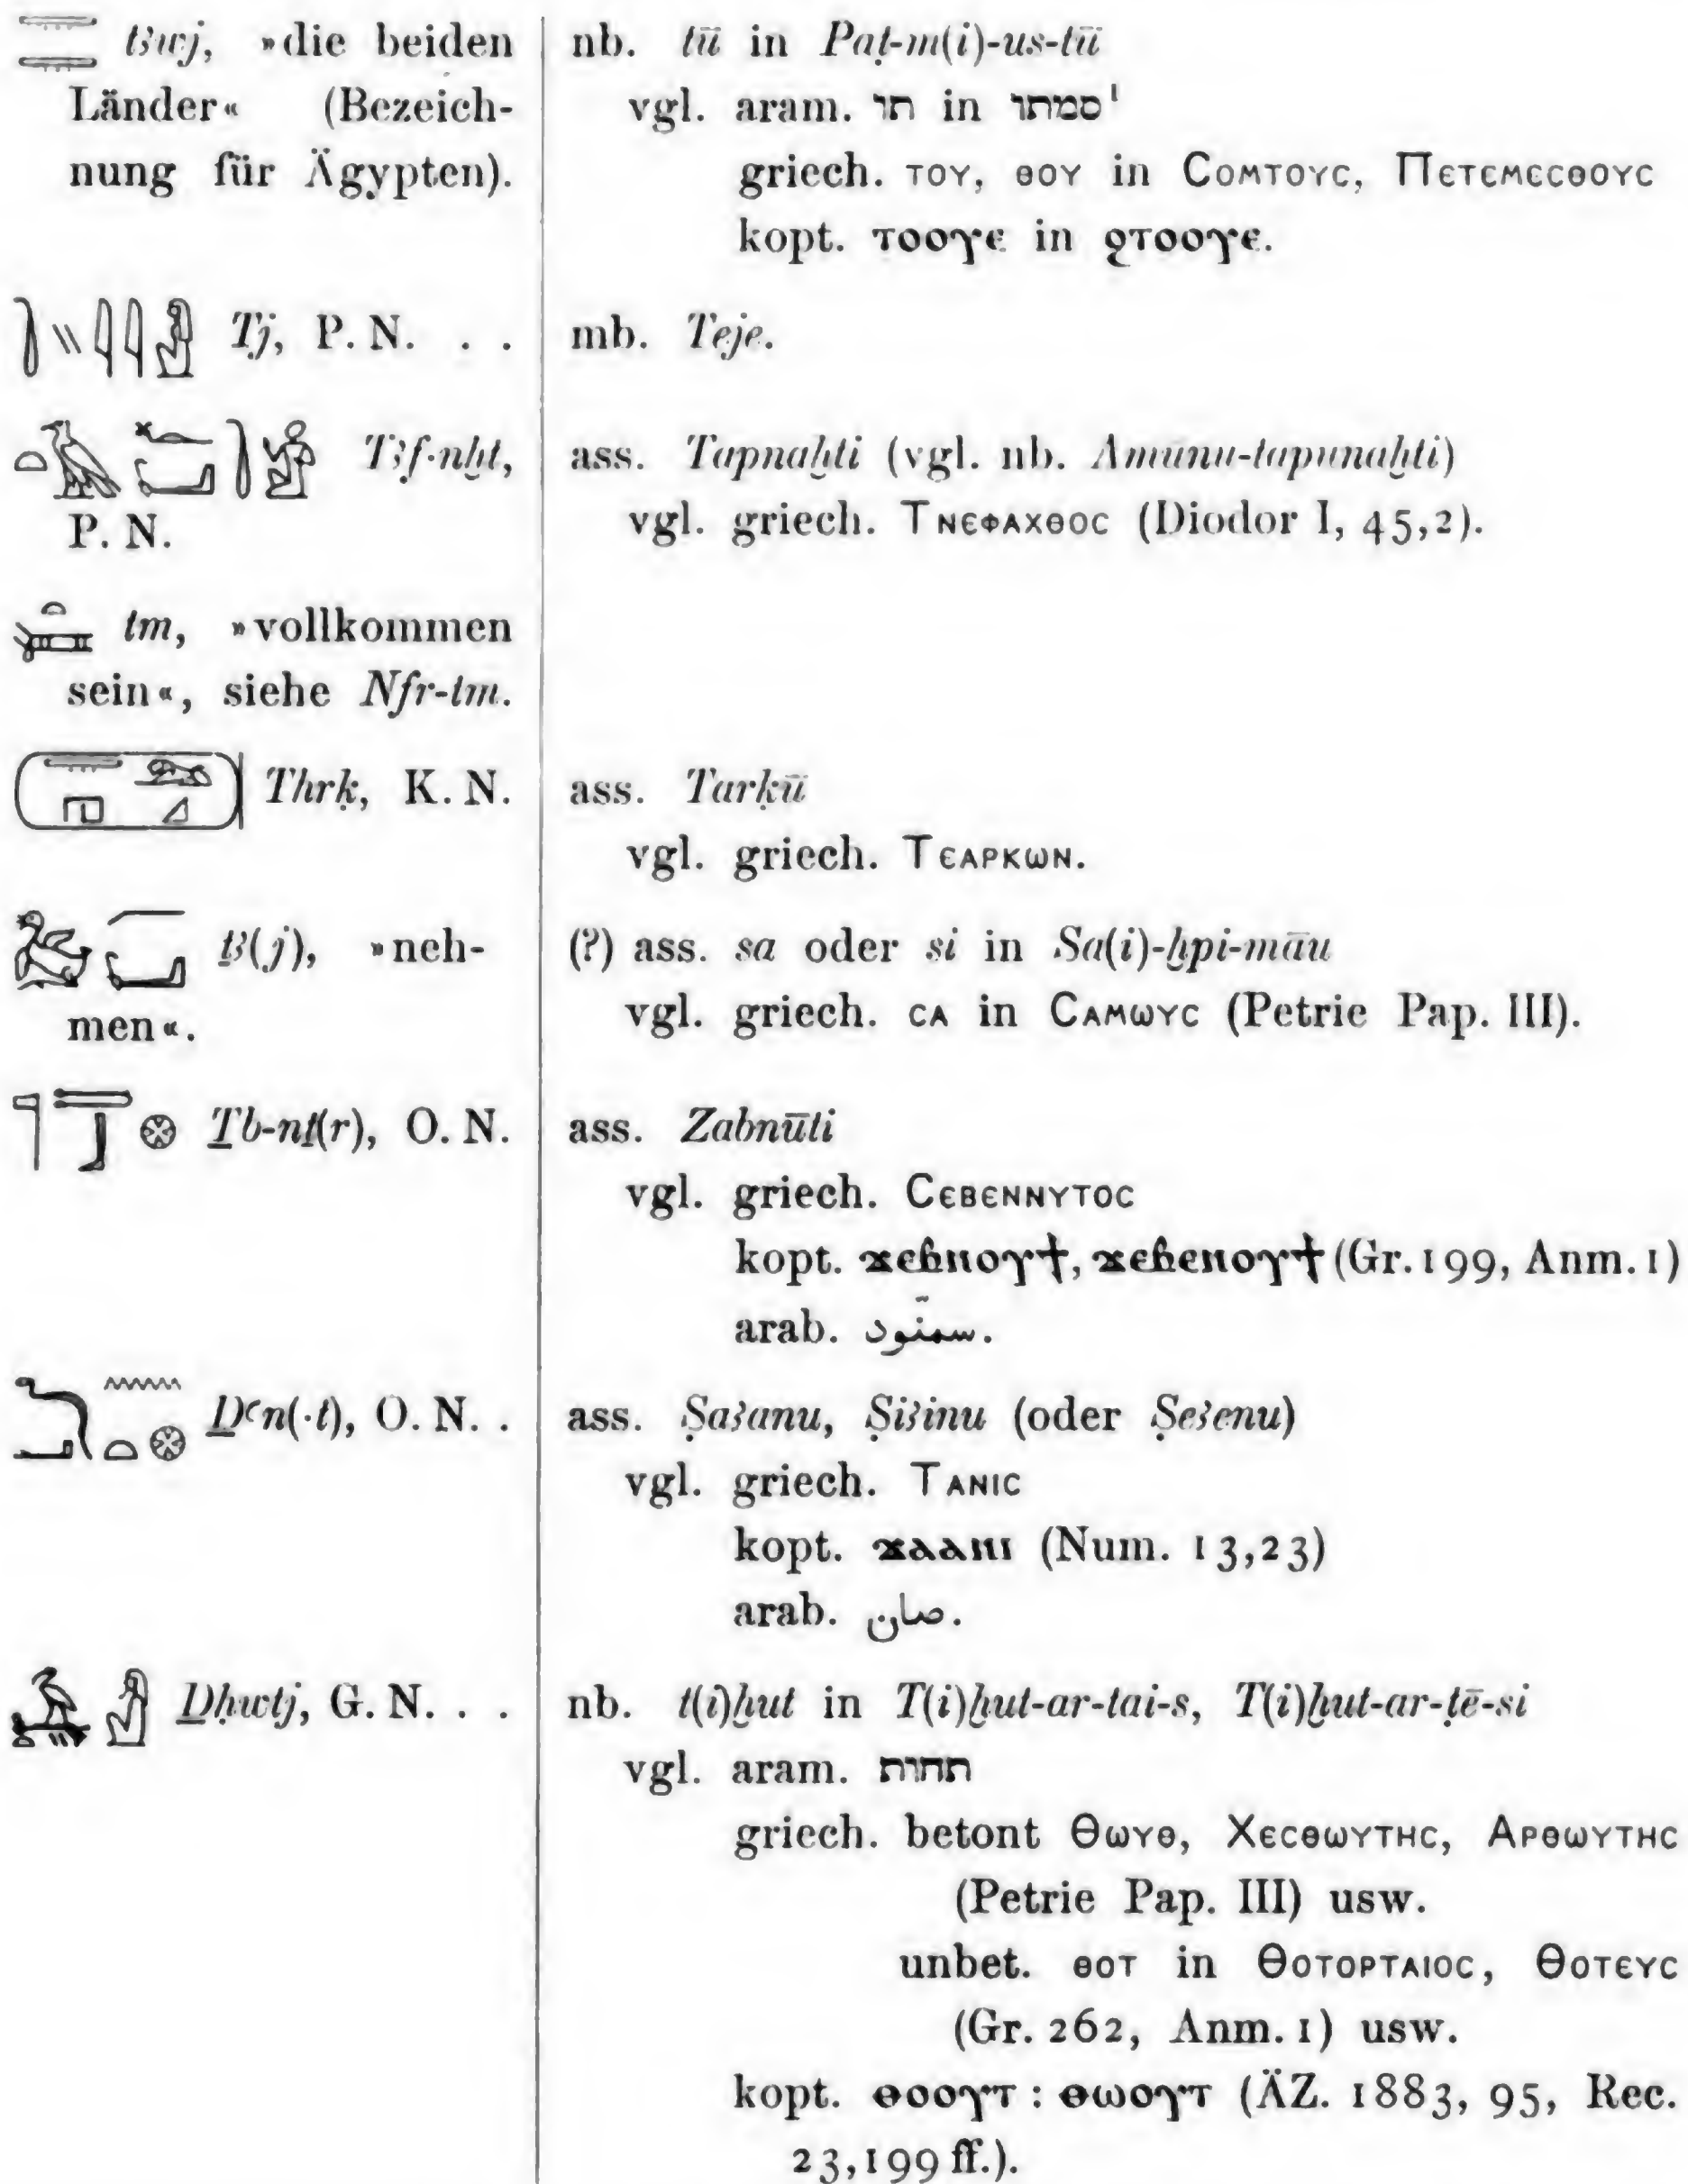 tꜣwj, »die beiden
Länder« (Bezeich-
nung für Ägypten).
nb. tū in Paṭ-m(i)-us-tū
vgl. aram. תו in סמתו¹
griech. ΤΟΥ, ΘΟΥ in ΣΟΜΤΟΥΣ, ΠΕΤΕΜΕΣΘΟΥΣ
kopt. ⲧⲟⲟⲩⲉ in ϩⲧⲟⲟⲩⲉ.
Tj, P. N. . .
mb. Teje.
Tꜣf·nḫt,
P. N.
ass. Tapnaḫti (vgl. nb. Amūnu-tapunaḫti)
vgl. griech. ΤΝΕΦΑΧΘΟΣ (Diodor I, 45,2).
tm, »vollkommen
sein«, siehe Nfr-tm.
Thrḳ, K. N.
ass. Tarḳū
vgl. griech. ΤΕΑΡΚΩΝ.
ṯꜣ(j), »neh-
men«.
(?) ass. sa oder si in Sa(i)-ḫpi-māu
vgl. griech. ΣΑ in ΣΑΜΩΥΣ (Petrie Pap. III).
Ṯb-nṯ(r), O. N.
ass. Zabnūti
vgl. griech. ΣΕΒΕΝΝΥΤΟΣ
kopt. ϫⲉⲃⲛⲟⲩϯ, ϫⲉⲃⲉⲛⲟⲩϯ (Gr. 199, Anm. 1)
arab. سمنّود.
Ḏꜥn(·t), O. N. .
ass. Ṣaʾanu, Ṣiʾinu (oder Ṣeʾenu)
vgl. griech. ΤΑΝΙΣ
kopt. ϫⲁⲁⲛⲓ (Num. 13,23)
arab. صان.
Ḏḥwtj, G. N. . .
nb. t(i)ḫut in T(i)ḫut-ar-tai-s, T(i)ḫut-ar-ṭē-si
vgl. aram. תחות
griech. betont ΘΩΥΘ, ΧΕΣΘΩΥΤΗΣ, ΑΡΘΩΥΤΗΣ
(Petrie Pap. III) usw.
unbet. ΘΟΤ in ΘΟΤΟΡΤΑΙΟΣ, ΘΟΤΕΥΣ
(Gr. 262, Anm. 1) usw.
kopt. ⲑⲟⲟⲩⲧ : ⲑⲱⲟⲩⲧ (ÄZ. 1883, 95, Rec.
23,199 ff.).